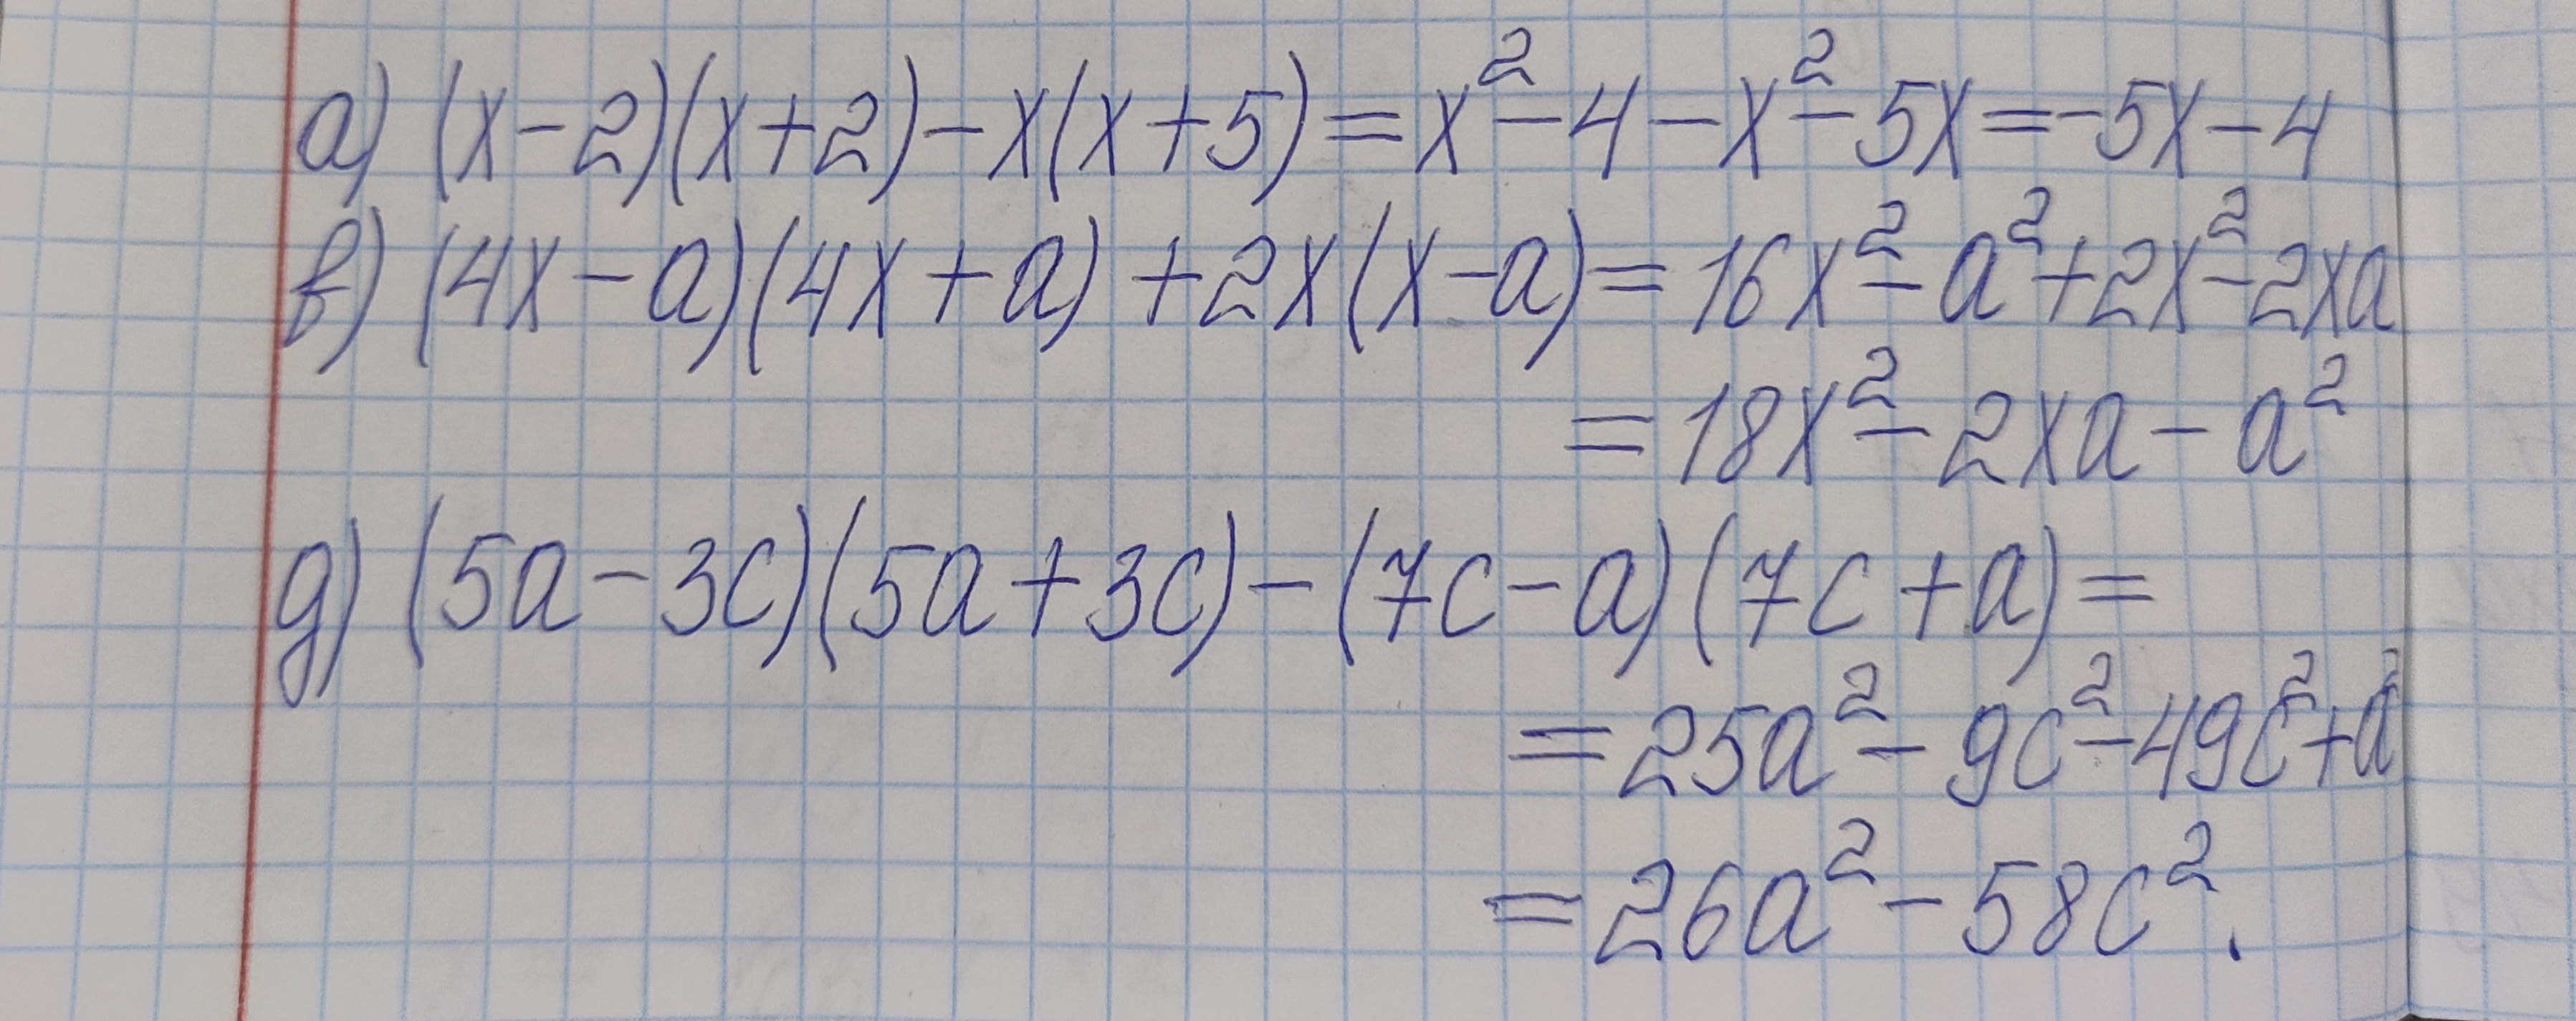 а) (x-2)(x+2)-x(x+5)=x²-4-x²-5x=-5x-4
в) (4x-a)(4x+a)+2x(x-a)=16x²-a²+2x²-2xa
=18x²-2xa-a²
д) (5a-3c)(5a+3c)-(7c-a)(7c+a)=
=25a²-9c²-49c²+a²
=26a²-58c².